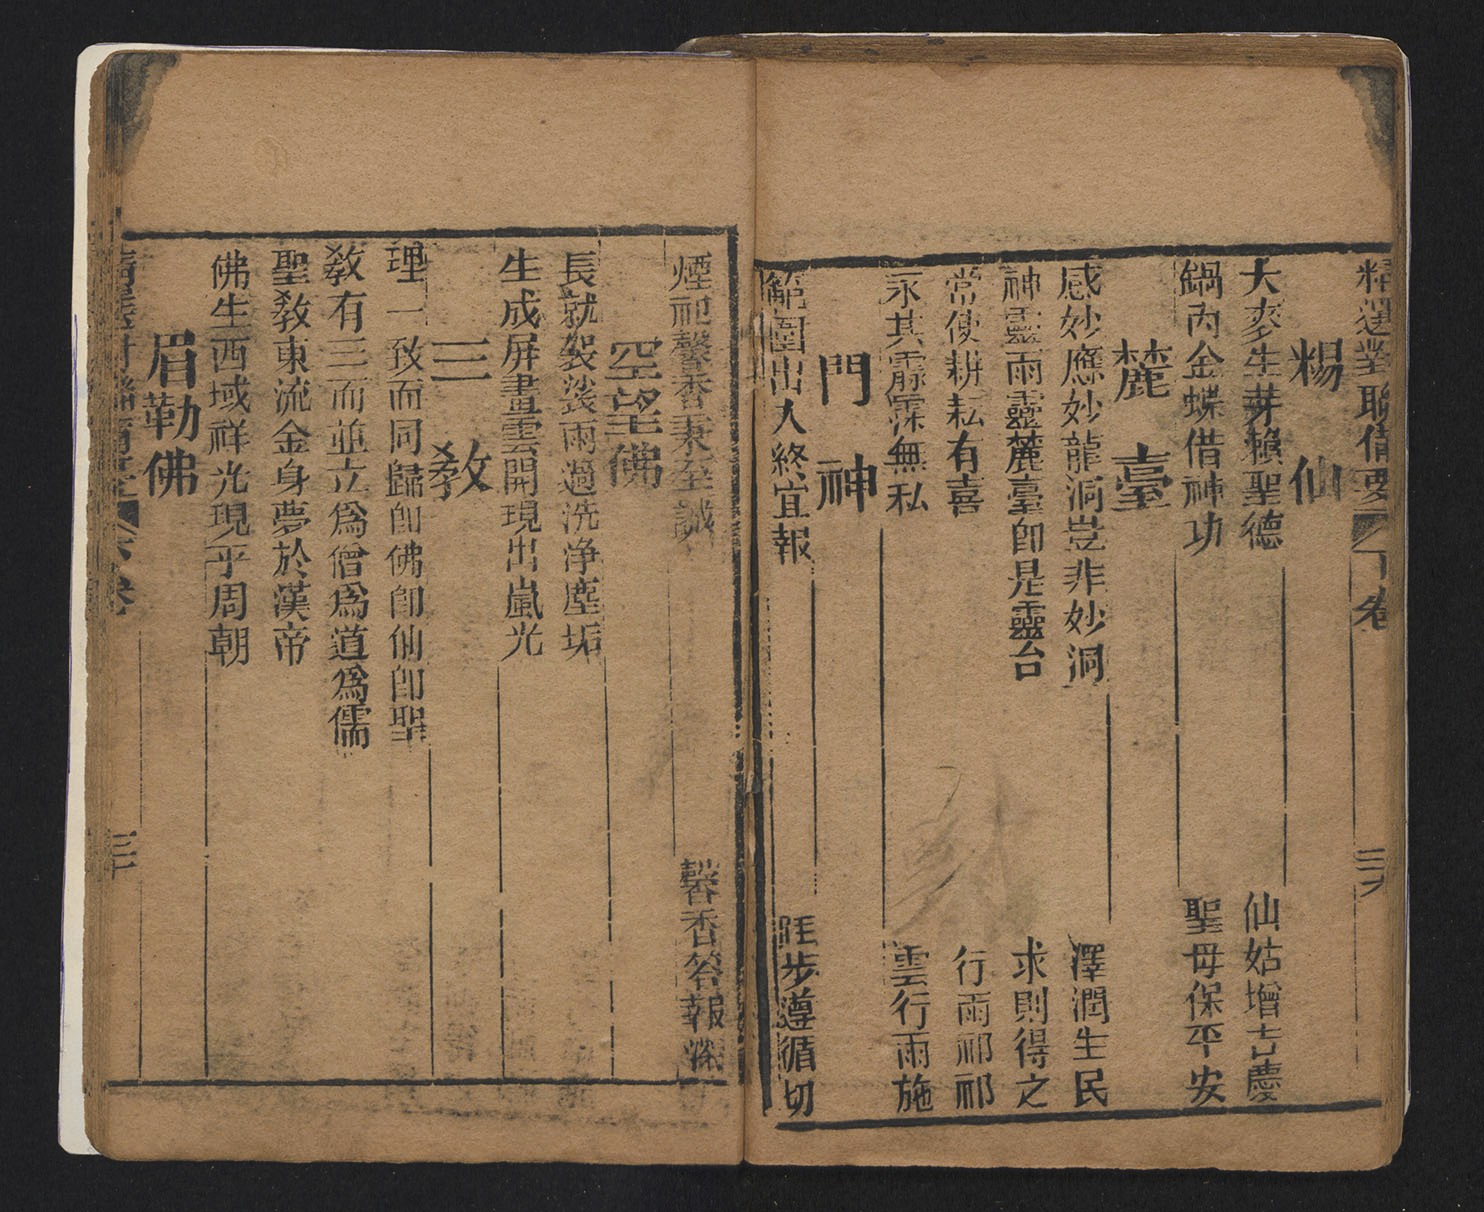 精選對聯備要 下卷 二十九
糃仙
大麥生芽賴聖德 仙姑增吉慶
鍋內金蝶借神功 聖母保平安
麓臺
感妙應妙龍洞豈非妙洞 澤潤生民
神靈雨靈麓臺卽是靈台 求則得之
常使耕耘有喜 行雨祁祁
永其霢霂無私 雲行雨施
門神
範圍出入終宜報 旺步遵循切
煙祀馨香秉至誠 馨香答報深
空望佛
長就袈裟雨過洗淨塵垢
生成屏畫雲開現出嵐光
三教
理一致而同歸卽佛卽仙卽聖
教有三而並立爲僧爲道爲儒
聖教東流金身夢於漢帝
佛生西域祥光現乎周朝
眉勒佛
三十